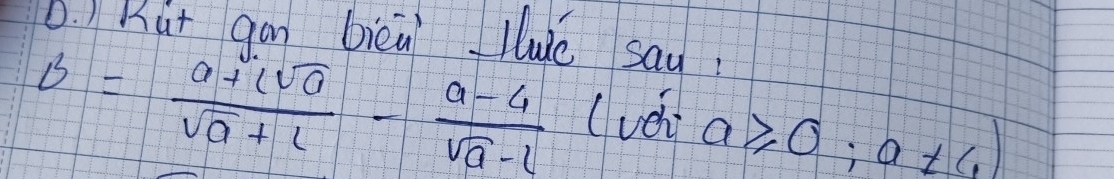 b.) Rút gọn biểu thức sau:
B = \frac{a+2\sqrt{a}}{\sqrt{a}+2} - \frac{a-4}{\sqrt{a}-2} (với a ≥ 0 ; a ≠ 4)